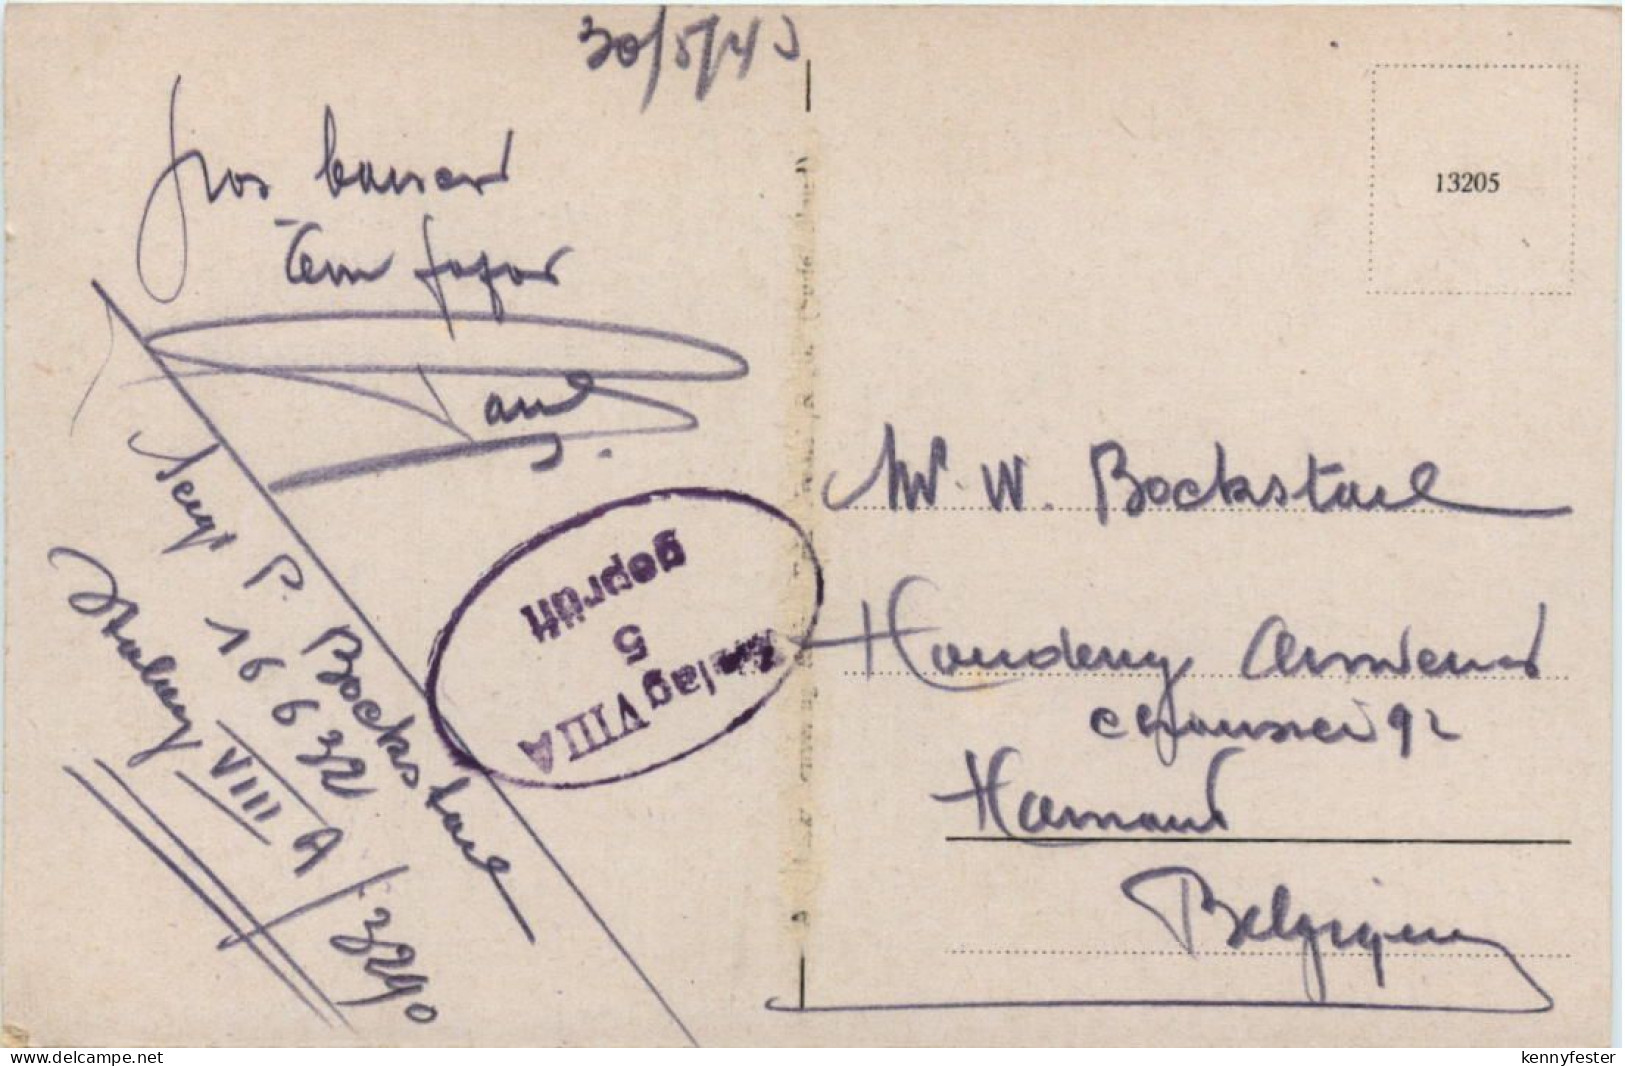 30/5/43
Gros baisers
Ton
Paul
Sergt P. Bockstael
16632
Stalag VIII A / 3290
Stalag VIII A
5
geprüft
13205
Mr. W. Bockstael
Houdeng Aimeries
chaussée 92
Hainaut
Belgique
www.delcampe.net
kennyfester